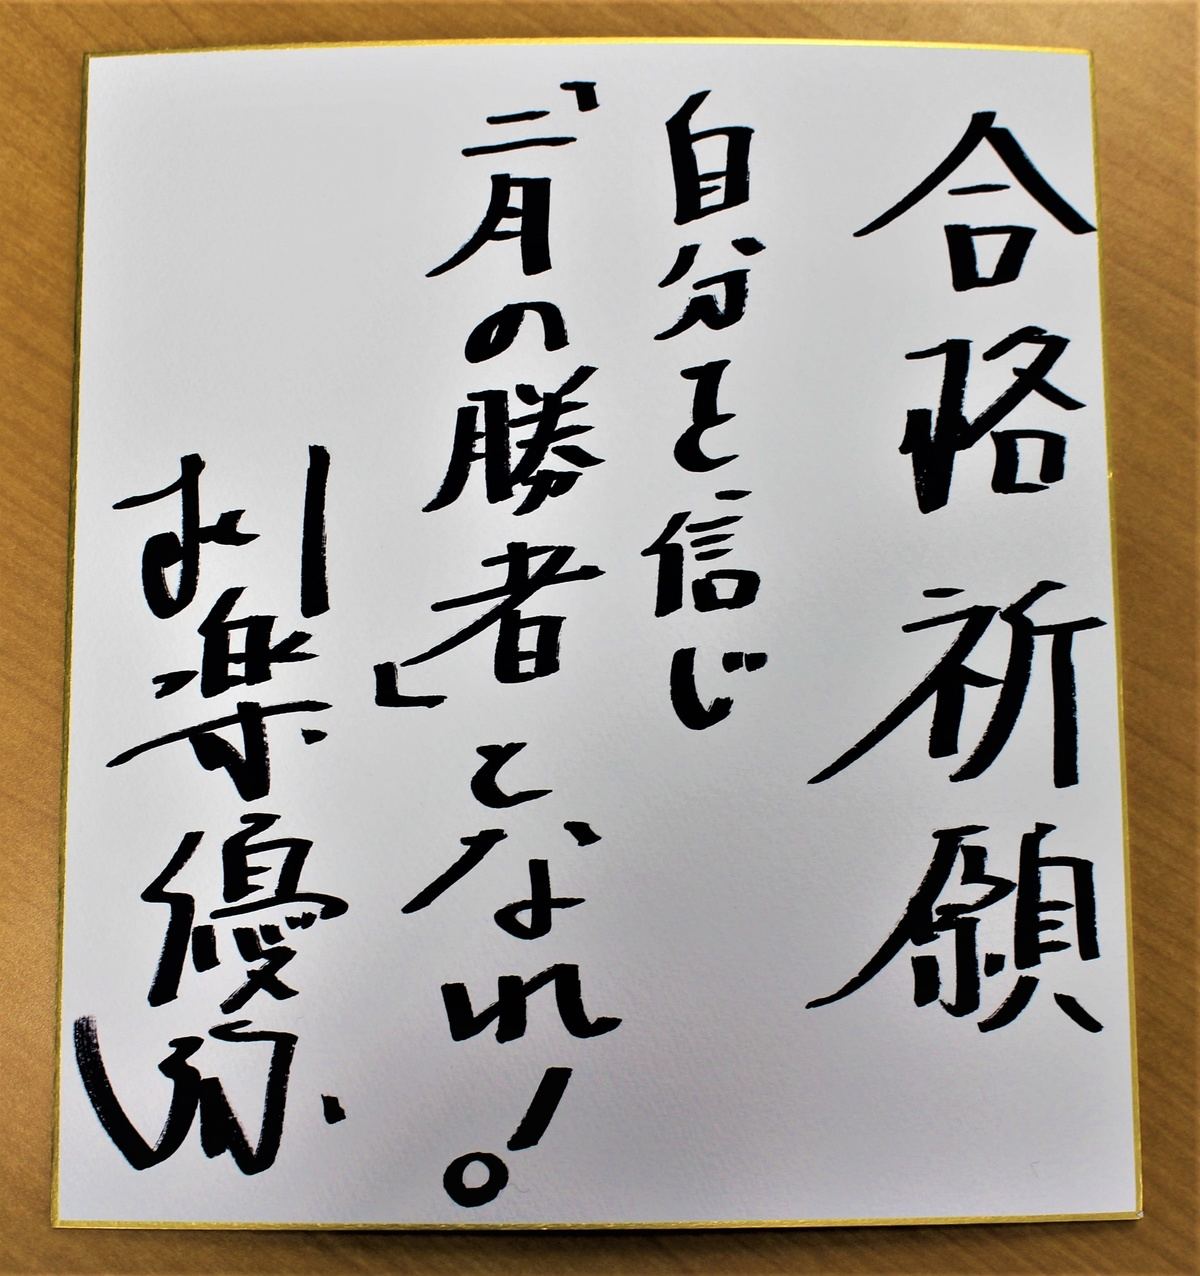 合格祈願
自分を信じ
「二月の勝者」となれ!
柳楽優弥